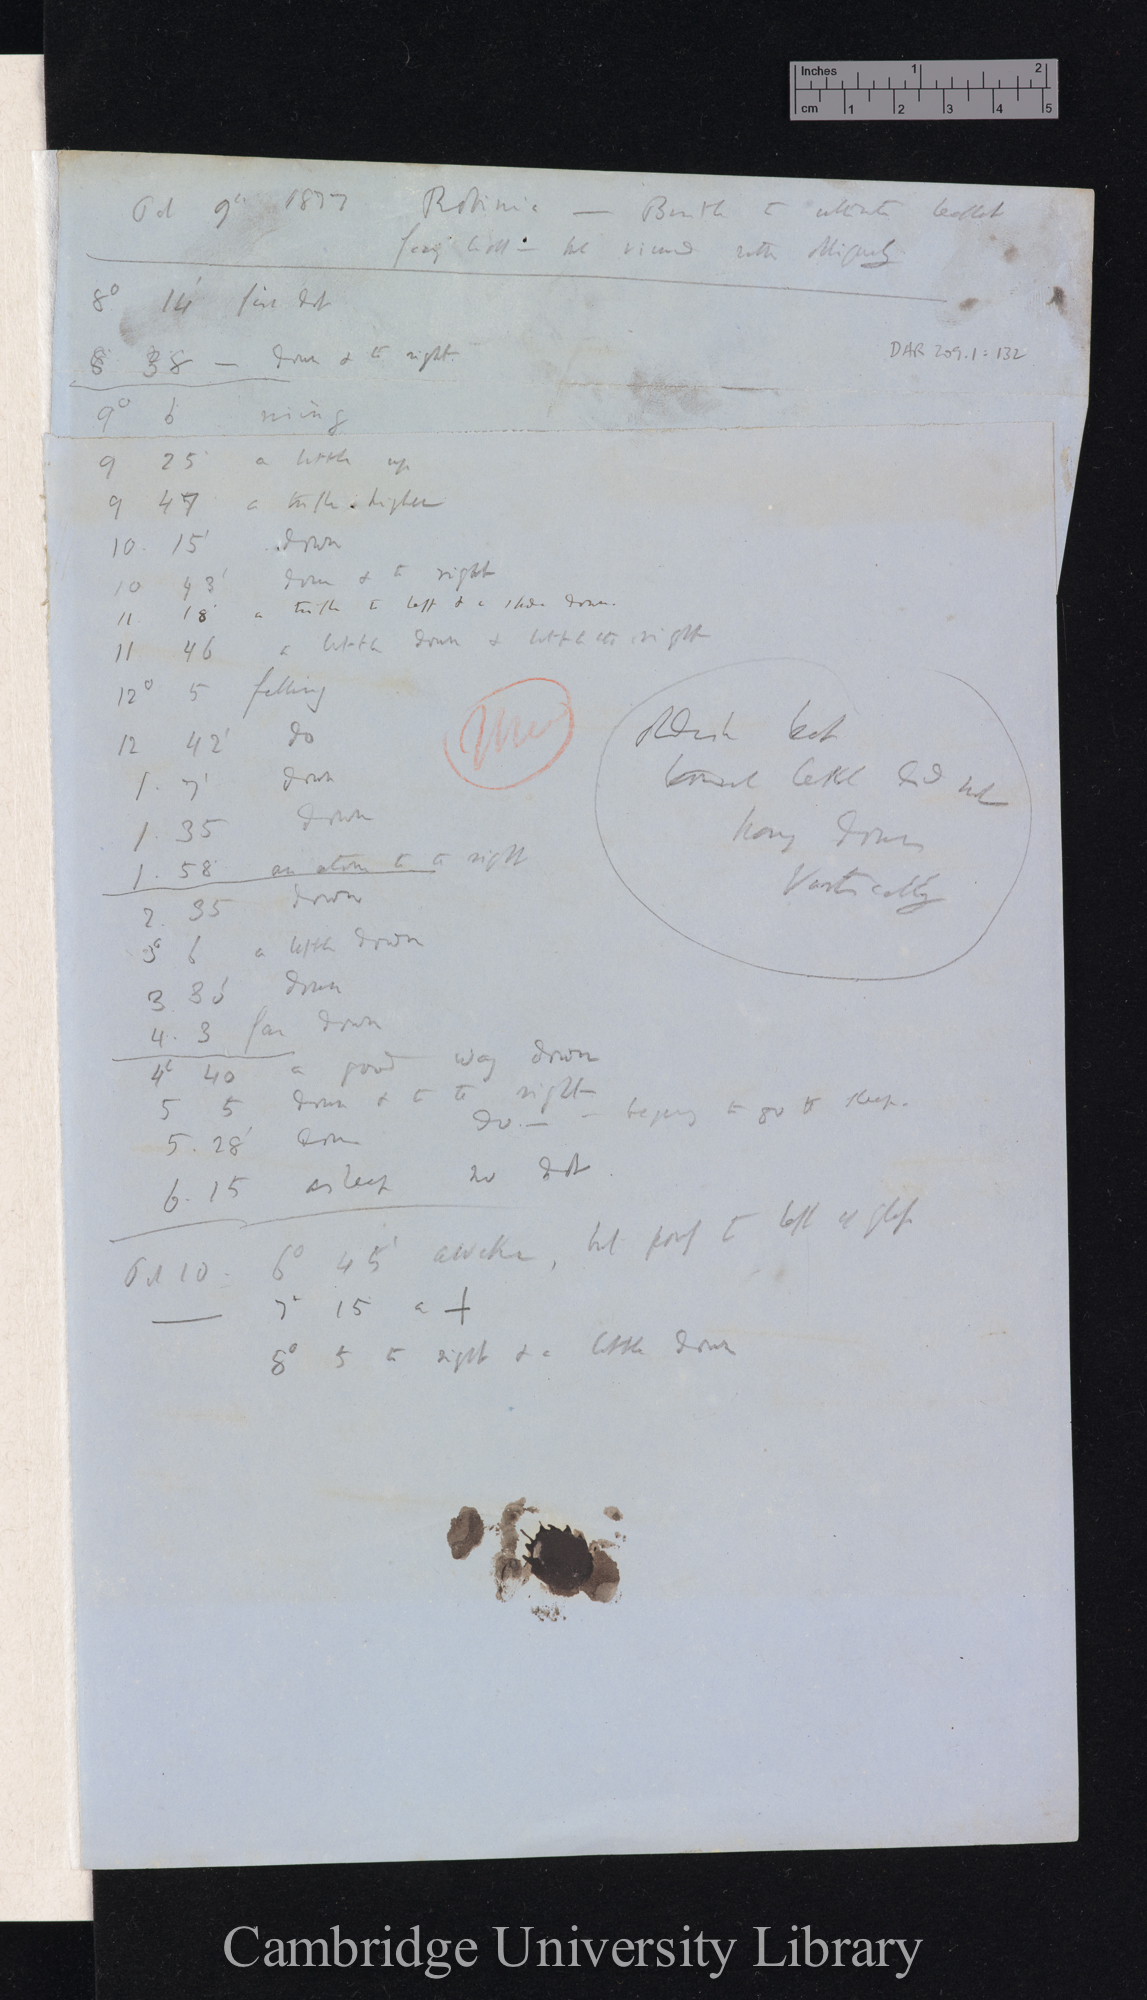 Inches 1 2
cm 1 2 3 4 5
Oct 9th 1877 Robinia —
8° 14' first dot
DAR 209.1:132
8 38 — down & to right
9° 6 rising
9 25 a little up
9 47 a trifle higher
10. 15' down
10 43' down & to right
11 18 a trifle to left & a down.
11 46 a little down & little to right
12° 5 falling
12 42' do
1. 7' down
1. 35 down
1. 58 an atom to right
2. 35 down
3° 6 a little down
3 36 down
4. 3 far down
4° 40 a good way down
5 5 down & to right
5. 28' down do. — to go to sleep.
6. 15 asleep no dot
Oct 10. 6° 45' awake, but to left of glass
7° 15 a +
8° 5 to right & a little down
did not
hang down
Vertically
Cambridge University Library